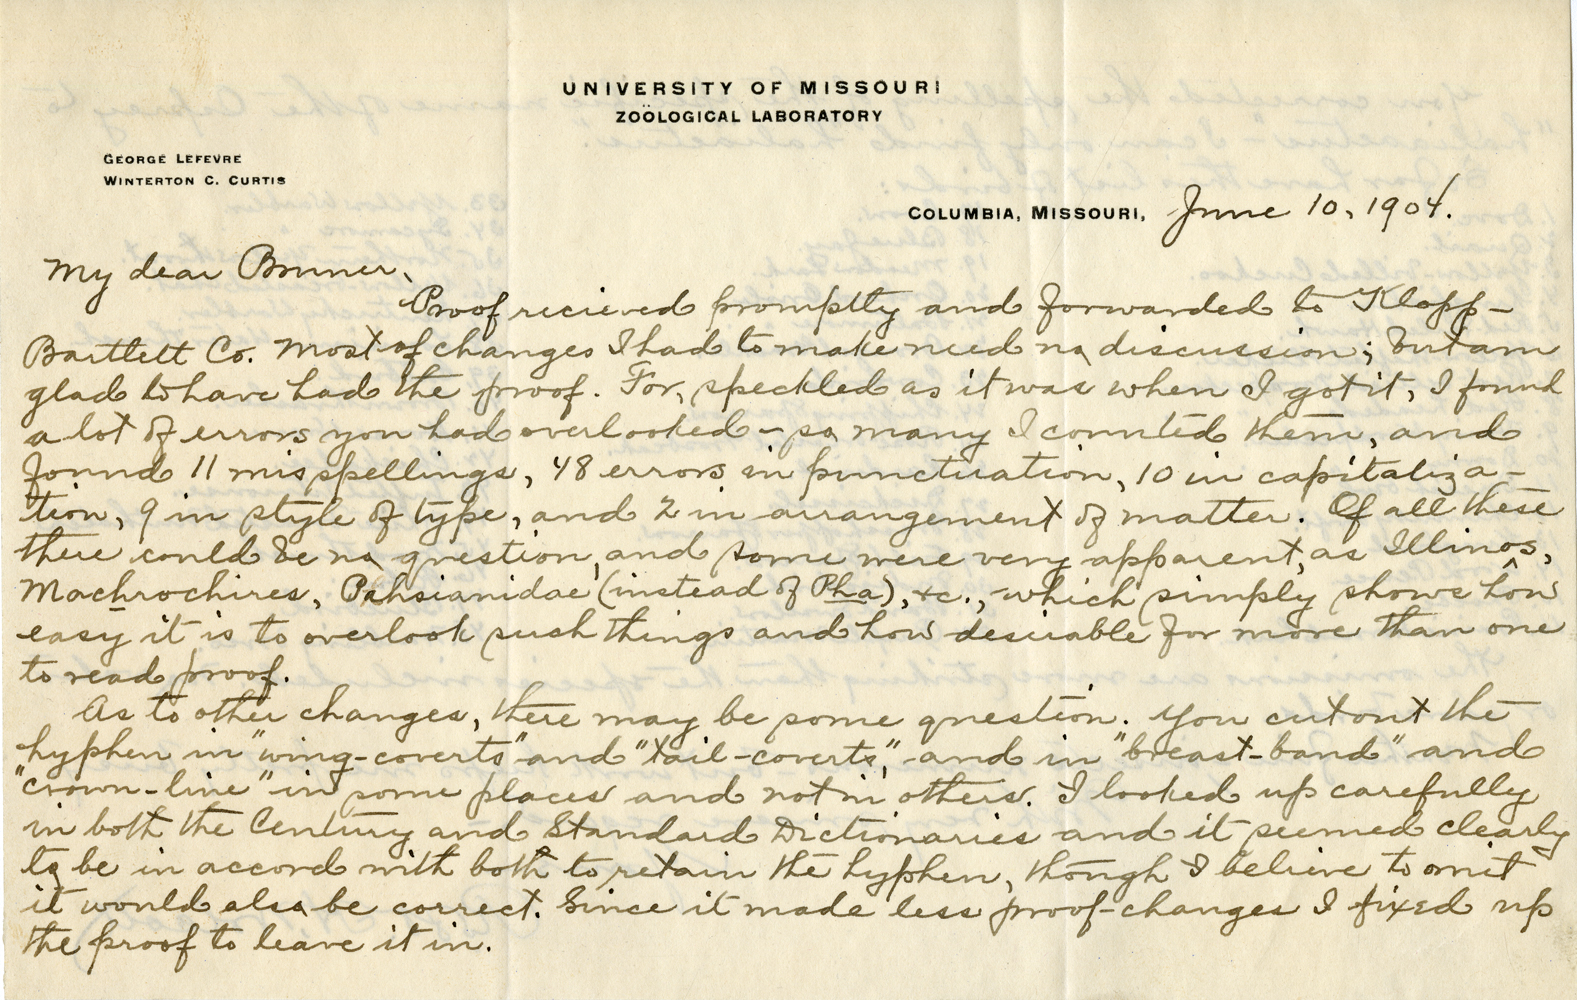 UNIVERSITY OF MISSOURI
ZOÖLOGICAL LABORATORY
GEORGE LEFEVRE
WINTERTON C. CURTIS
COLUMBIA, MISSOURI, June 10, 1904.
My dear Bruner,
Proof recieved promptly and forwarded to Klopp-
Bartlett Co. Most of changes I had to make need no discussion; but am
glad to have had the proof. For, speckled as it was when I got it, I found
a lot of errors you had overlooked - so many I counted them, and
found 11 misspellings, 48 errors in punctuation, 10 in capitaliza-
tion, 9 in style of type, and 2 in arrangement of matter. Of all these
there could be no question, and some were very apparent, as Illinos,
Machrochires, Pahsianidae (instead of Pha), &c., which simply shows how
easy it is to overlook such things and how desirable for more than one
to read proof.
As to other changes, there may be some question. You cut out the
hyphen in "wing-coverts" and "tail-coverts," and in "breast-band" and
"crown-line" in some places and not in others. I looked up carefully
in both the Century and Standard Dictionaries and it seemed clearly
to be in accord with both to retain the hyphen, though I believe to omit
it would also be correct. Since it made less proof-changes I fixed up
the proof to leave it in.